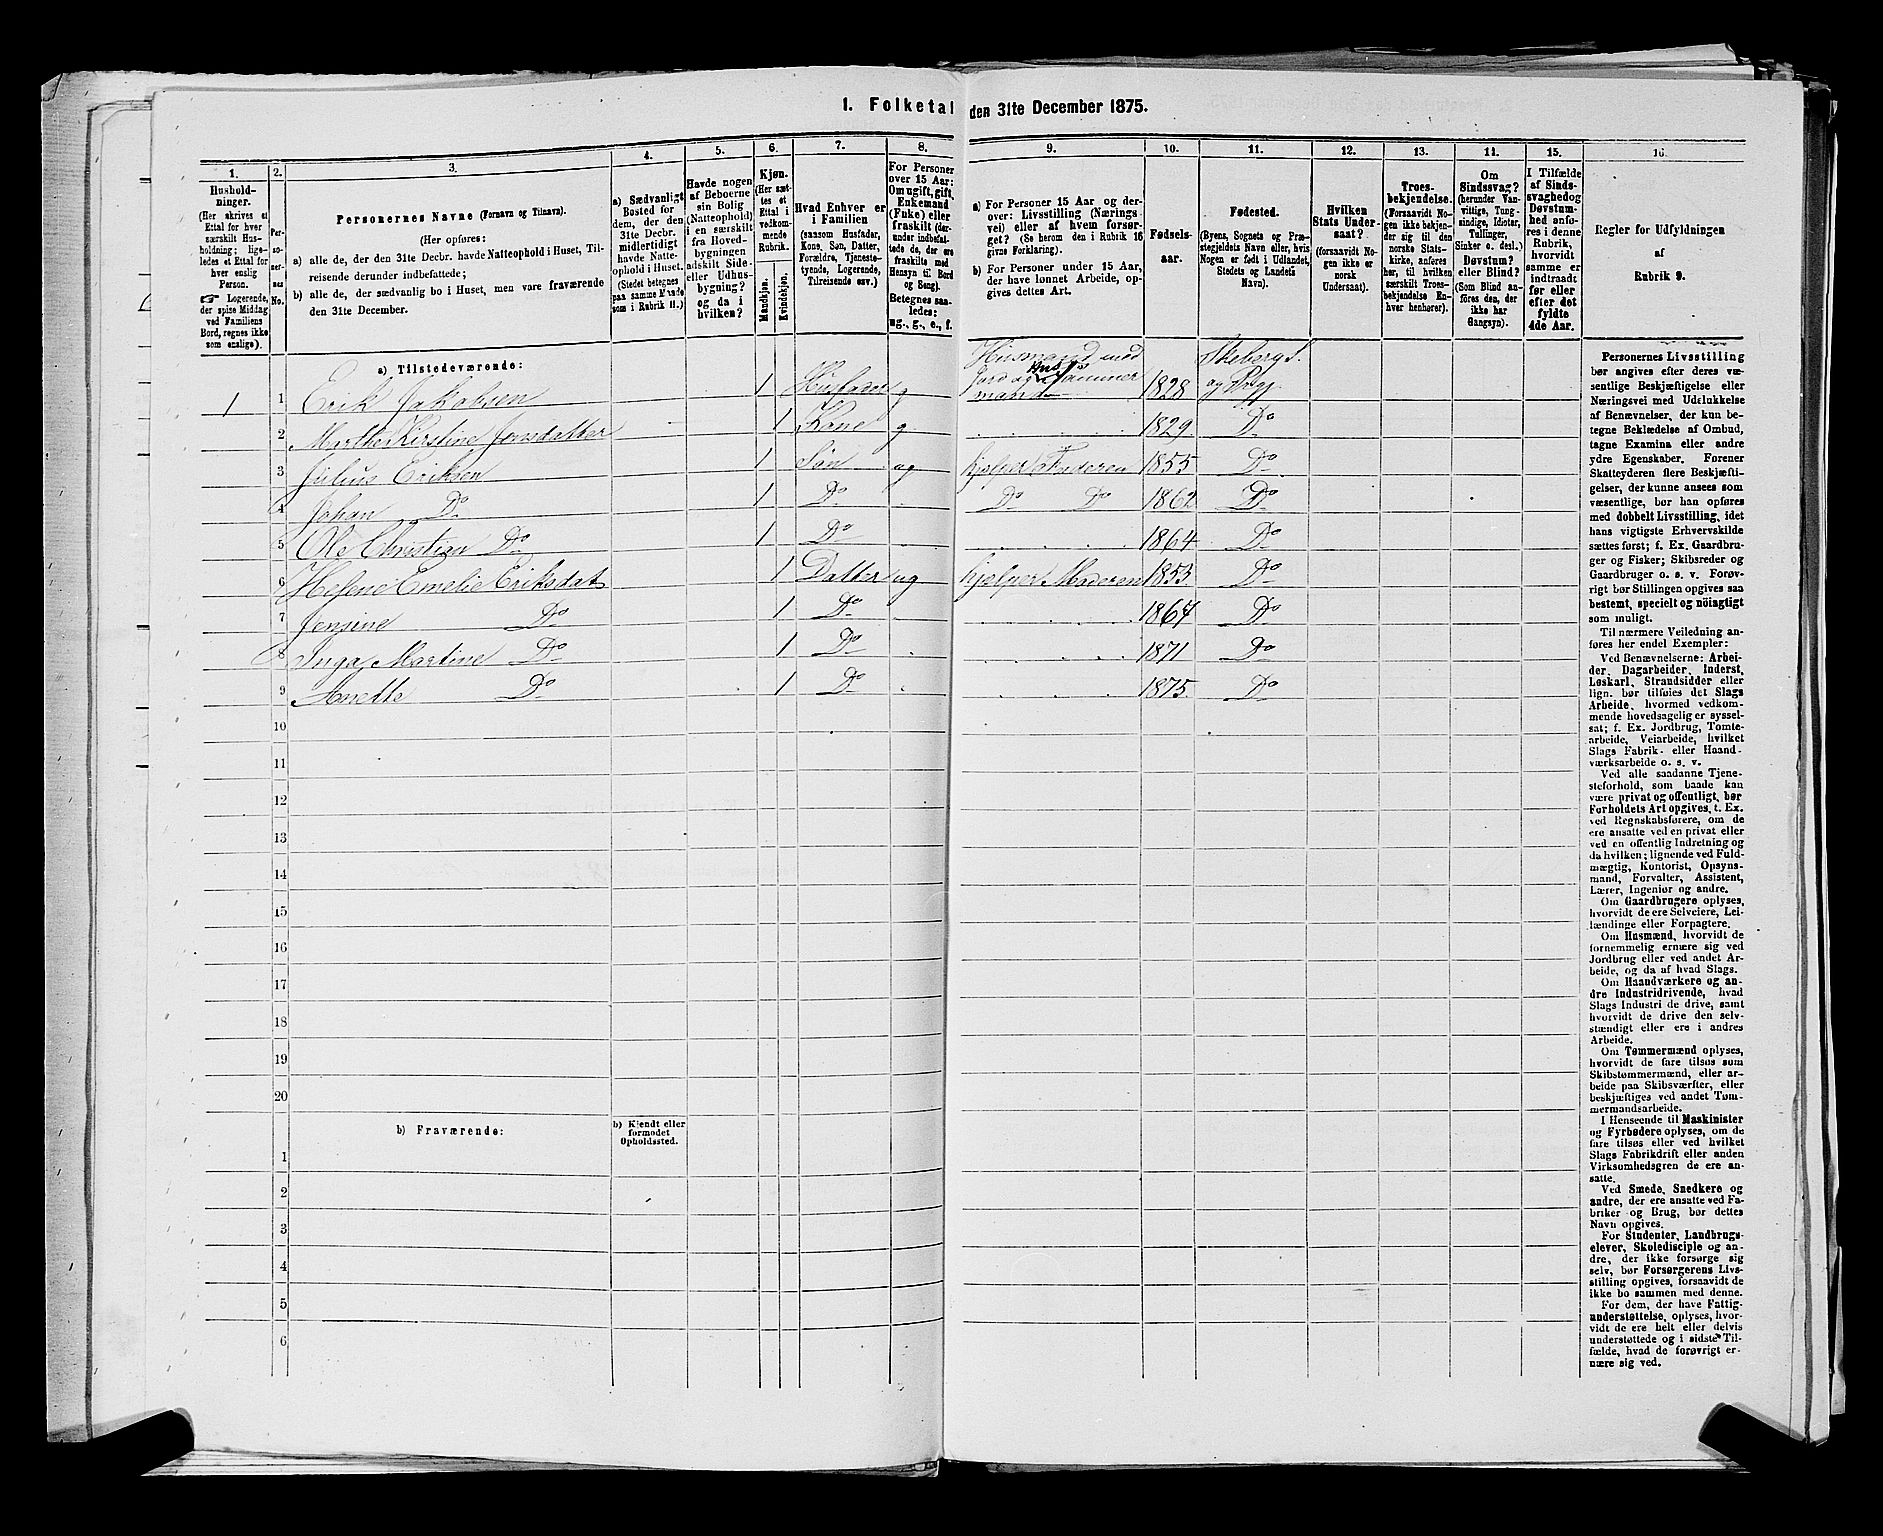 1. Folketal den 31te December 1875.
1.
Husholdninger.
(Her skrives et
Ettal for hver
særskilt Husholdning;
ligeledes et Ettal for
hver enslig
Person.
☞ Logerende,
der spise Middag
ved Familiens
Bord, regnes ikke
som enslige).
2.
Personernes No.
3.
Personernes Navne (Fornavn og Tilnavn).
(Her opføres:
a) alle de, der den 31te Decbr. havde Natteophold i Huset, Tilreisende derunder indbefattede;
b) alle de, der sædvanlig bo i Huset, men vare fraværende
den 31te December.
4.
a) Sædvanligt
Bosted for
dem, der den
31te Decbr.
midlertidigt
havde Natteophold i Huset.
(Stedet betegnes
paa samme Maade
som i Rubrik 11.)
5.
Havde nogen
af Beboerne
sin Bolig
(Natteophold)
i en særskilt
fra Hovedbygningen
adskilt Side- eller Udhusbygning?
og da i
hvilken?
6.
Kjøn.
(Her sættes et
Ettal i
vedkommende
Rubrik.
Mandkjøn.
Kvindekjøn.
7.
Hvad Enhver er
i Familien
(saasom Husfader,
Kone, Søn, Datter,
Forældre, Tjenestetyende, Logerende,
Tilreisende osv.)
8.
For Personer
over 15 Aar:
Om ugift, gift,
Enkemand
(Enke) eller
fraskilt (derunder indbefattede, de, der ere
fraskilte med
Hensyn til Bord
og Seng).
Betegnes saaledes:
ug., g., e., f.
9.
a) For Personer 15 Aar og derover: Livsstilling (Næringsvei) eller af hvem forsørget? (Se herom den i Rubrik 16
givne Forklaring).
b) For Personer under 15 Aar,
der have lønnet Arbeide, opgives dettes Art.
10.
Fødselsaar.
11.
Fødested.
(Byens, Sognets og Præstegjeldets Navn eller, hvis
Nogen er født i Udlandet,
Stedets og Landets
Navn).
12.
Hvilken
Stats Undersaat?
(forsaavidt Nogen ikke er
norsk
Undersaat).
13.
Troesbekjendelse.
(Forsaavidt Nogen ikke bekjender sig til den
norske Statskirke, anføres
her, til hvilken
særskilt Troesbekjendelse Enhver henhører).
14.
Om
Sindssvag?
(herunder Vanvittige, Tungsindige, Idioter,
Tullinger,
Sinker o. desl.)
Døvstum?
eller Blind?
(Som Blind anføres den, der
ikke har
Gangsyn).
15.
I Tilfælde
af Sindssvaghed og
Døvstumhed anføres i denne
Rubrik,
hvorvidt
samme er
indtraadt
før eller
efter det
fyldte
4de Aar.
16.
Regler for Udfyldningen
af
Rubrik 9.
a) Tilstedeværende:
1 1 Erik Jakobsen 1 Husfader g Husmand med Jord og Hustømmermand 1828 Skebergs. og Prgj.
2 Marthe Kirstine Jensdatter 1 Kone g 1829 Do
3 Julius Eriksen 1 Søn ug hjelper Faderen 1855 Do
4 Johan Do 1 Do Do Do 1862 Do
5 Ole Christian Do 1 Do 1864 Do
6 Helene Emelie Eriksdat 1 Datter ug hjelper Moderen 1853 Do
7 Jensine Do 1 Do 1867 Do
8 Inga Martine Do 1 Do 1871 Do
9 Anette Do 1 Do 1875. Do
10
11
12
13
14
15
16
17
18
19
20
b) Fraværende:
b) Kjendt eller
formodet
Opholdssted.
1
2
3
4
5
6
Personernes Livsstilling
bør angives efter deres væsentlige Beskjæftigelse eller
Næringsvei med Udelukkelse
af Benævnelser, der kun betegne Beklædelse af Ombud,
tagne Examina eller andre
ydre Egenskaber. Forener
Skatteyderen flere Beskjæftigelser, der kunne ansees som
væsentlige, bør han opføres
med dobbelt Livsstilling, idet
hans vigtigste Erhvervskilde
sættes først; f. Ex. Gaardbruger og Fisker; Skibsreder og
Gaardbruger o. s. v. Forøvrigt bør Stillingen opgives saa
bestemt, specielt og nöiagtigt
som muligt.
Til nærmere Veiledning anføres her endel Exempler:
Ved Benævnelserne: Arbeider, Dagarbeider, Inderst,
Løskarl, Strandsidder eller
lign. bør tilføies det Slags
Arbeide, hvormed vedkommende hovedsagelig er sysselsat; f. Ex. Jordbrug, Tomtearbeide, Veiarbeide, hvilket
Slags Fabrik- eller Haandværksarbeide o. s. v.
Ved alle saadanne Tjenesteforhold, som baade kan
være privat og offentligt, bør
Forholdets Art opgives, t. Ex.
ved Regnskabsførere, om de
ere ansatte ved en privat eller
ved en offentlig Indretning og
da hvilken; lignende ved Fuldmægtig, Kontorist, Opsynsmand, Forvalter, Assistent,
Lærer, Ingeniør og andre.
Om Gaardbrugere oplyses,
hvorvidt de ere Selveiere, Leilændinge eller Forpagtere.
Om Husmænd, hvorvidt de
fornemmelig ernære sig ved
Jordbrug eller ved andet Arbeide, og da af hvad Slags.
Om Haandværkere og andre Industridrivende, hvad
Slags Industri de drive, samt
hvorvidt de drive den selvstændigt eller ere i andres
Arbeide.
Om Tømmermænd oplyses,
hvorvidt de fare tilsøs som
Skibstømmermænd, eller arbeide paa Skibsværfter, eller
beskjæftiges ved andet Tømmermandsarbeide.
I Henseende til Maskinister
og Fyrbødere oplyses, om de
fare tilsøs eller ved hvilket
Slags Fabrikdrift eller anden
Virksomhedsgren de ere ansatte.
Ved Smede, Snedkere og
andre, der ere ansatte ved Fabriker og Brug, bør dettes
Navn opgives.
For Studenter, Landbrugselever, Skoledisciple og andre, der ikke forsørge sig
selv, bør Forsørgerens Livsstilling opgives, forsaavidt de
ikke bo sammen med denne.
For dem, der have Fattigunderstøttelse, oplyses, hvorvidt de ere helt eller delvis
understøttede og i sidste Tilfælde, hvad de forøvrigt ernære sig ved.